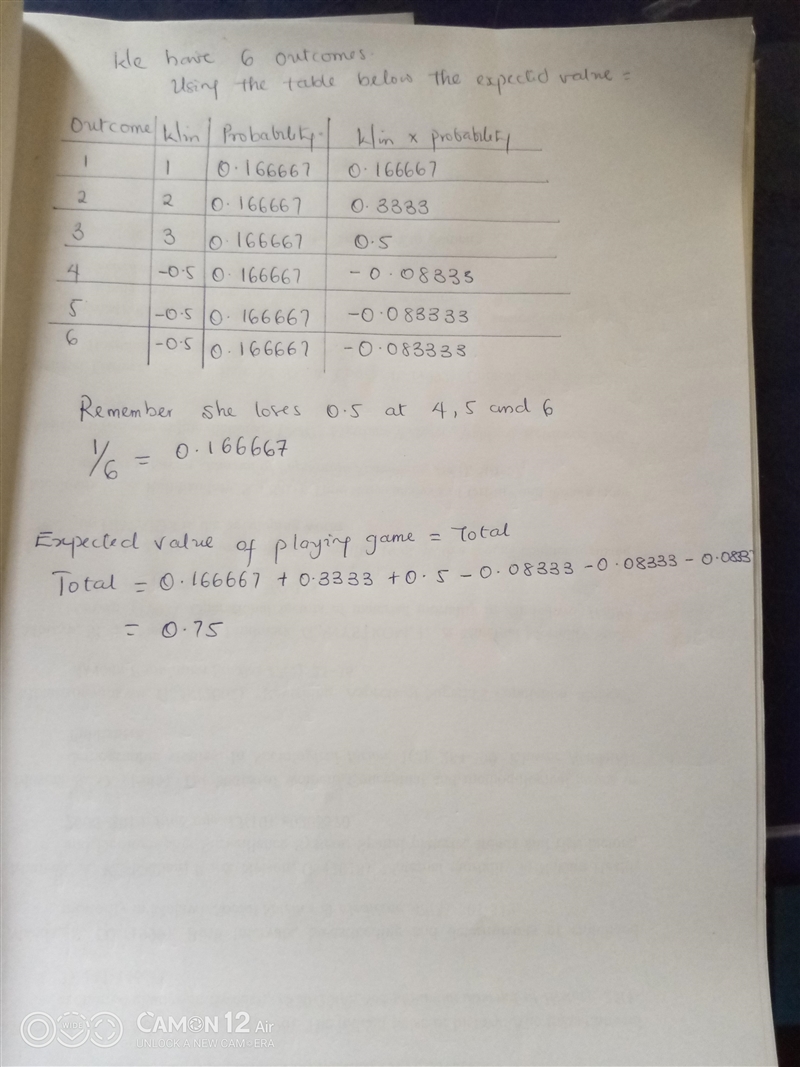 We have 6 outcomes.
Using the table below the expected value =
Outcome Win Probability Win x probability
1 1 0.166667 0.166667
2 2 0.166667 0.3333
3 3 0.166667 0.5
4 -0.5 0.166667 -0.08333
5 -0.5 0.166667 -0.083333
6 -0.5 0.166667 -0.083333
Remember she loses 0.5 at 4, 5 and 6
1/6 = 0.166667
Expected value of playing game = Total
Total = 0.166667 + 0.3333 + 0.5 - 0.08333 - 0.08333 - 0.0833
= 0.75
CAMON 12 Air
UNLOCK A NEW CAMERA